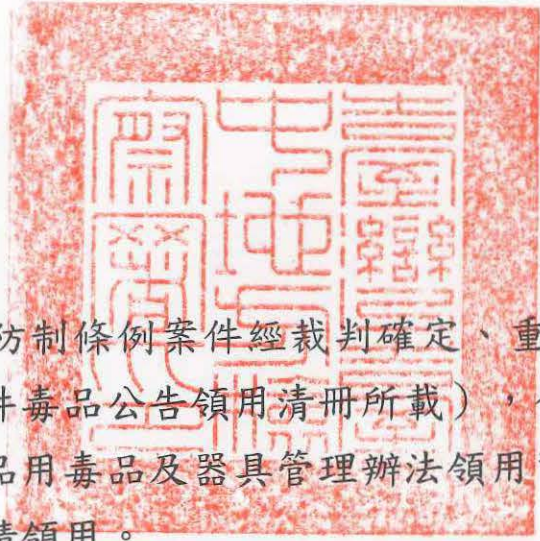 臺灣臺
中地方檢
察署印
防制條例案件經裁判確定、重
件毒品公告領用清冊所載），
品用毒品及器具管理辦法領用
請領用。